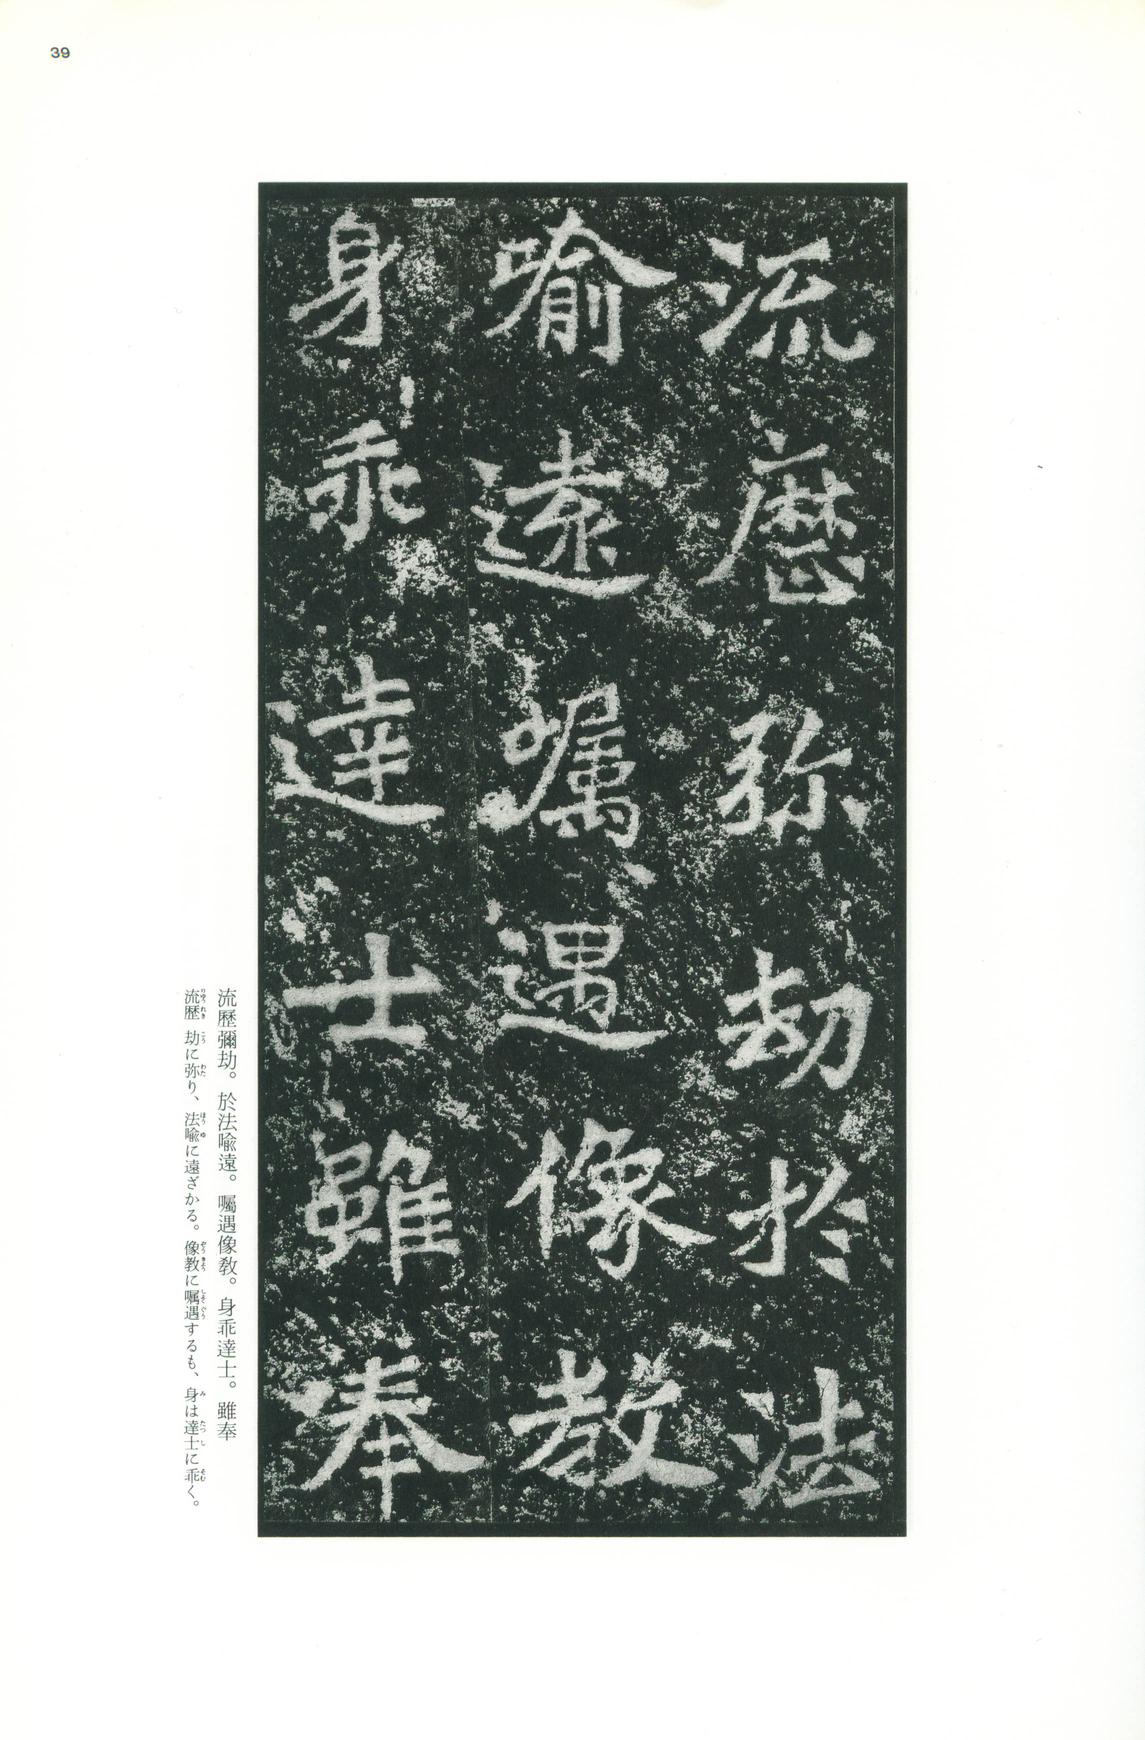 39
流歷弥劫於法
喻遠嘱遇像教
身乖達士雖奉
流歷彌劫。於法喩遠。囑遇像敎。身乖達士。雖奉
流歴劫に弥り、法喩に遠ざかる。像教に嘱遇するも、身は達士に乖く。